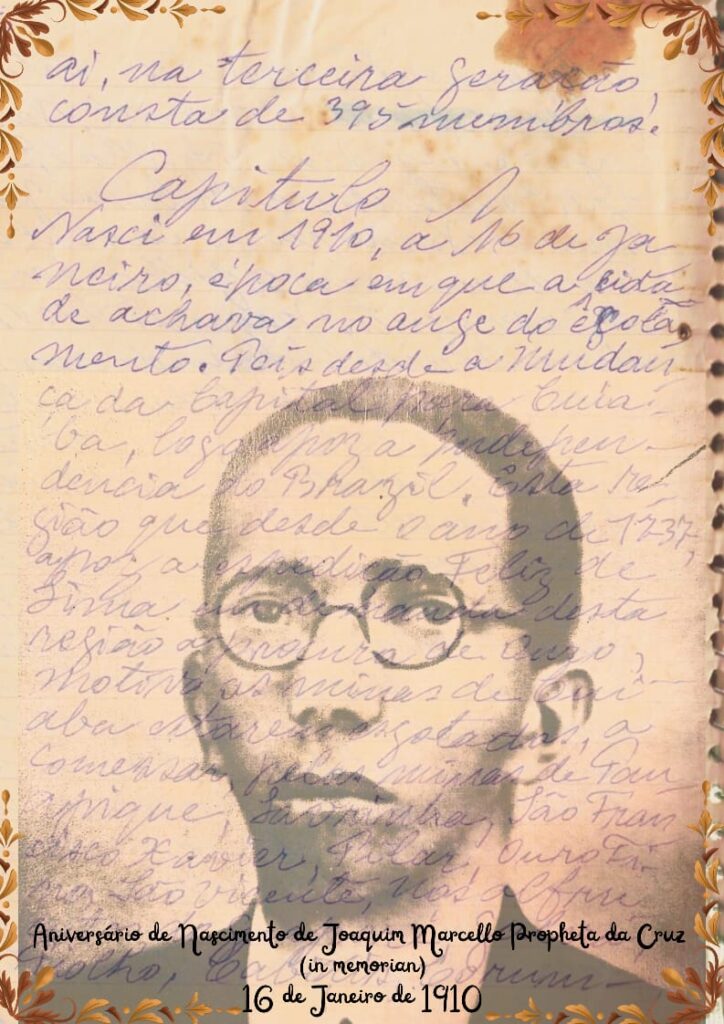 ai, na terceira geração,
consta de 395 membros.
Capitulo 1
Nasci em 1910, a 16 de Ja
neiro, época em que a cida
de achava no auge do isola
mento. Pois desde a mudan
ça da Capital para Cuia-
ba, logo apoz a indepen-
dencia do Brazil. Esta re-
gião que desde o ano de 1737,
apoz a expedição Feliz de
Lima desta
região a procura de Ouro,
motivo as minas de Cui-
aba estarem esgotadas, a
comessar, pelas minas de
São Fran
cisco Xavier, Pilar, Ouro Fi-
no, São Vicente,
Aniversário de Nascimento de Joaquim Marcello Propheta da Cruz
(in memorian)
16 de Janeiro de 1910